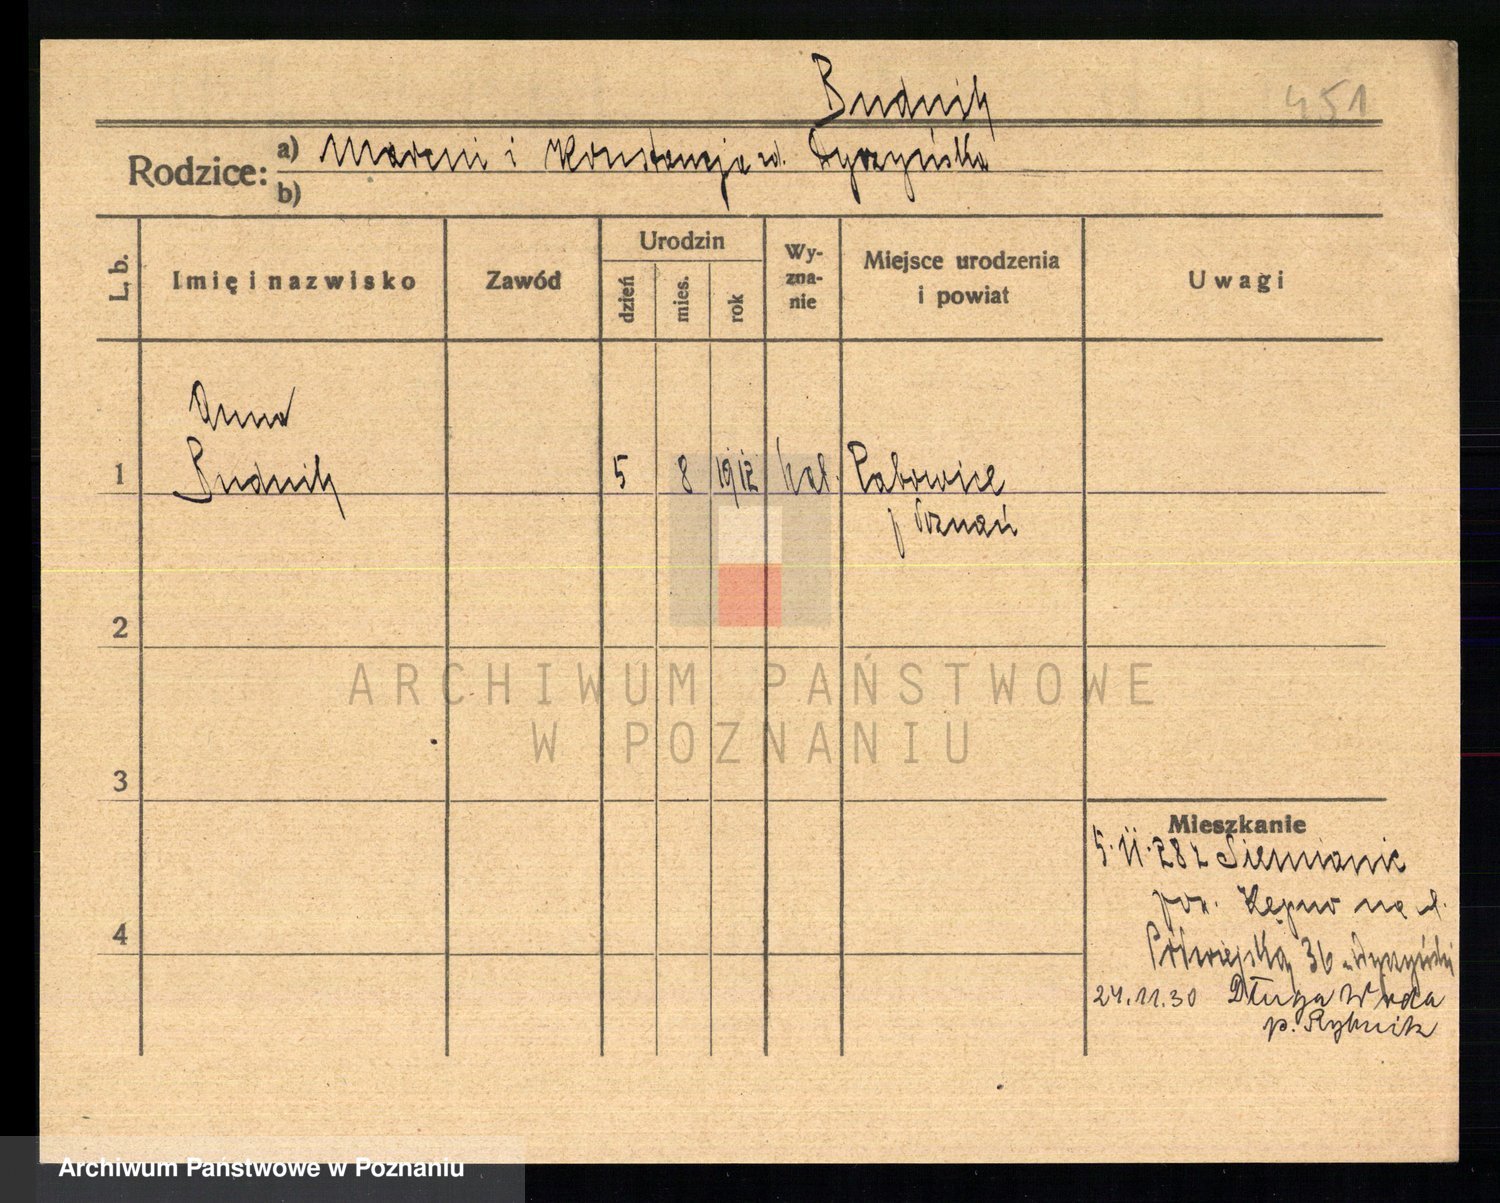 Budnik
451
Rodzice:
a) Marcin i Konstancja zd. Dyrzyńska
b)
L. b.
Imię i nazwisko
Zawód
Urodzin
dzień
mies.
rok
Wy-
zna-
nie
Miejsce urodzenia
i powiat
Uwagi
Anna
1 Budnik 5 8 1912 kat.
p Poznań
2
ARCHIWUM PAŃSTWOWE
W POZNANIU
3
Mieszkanie
5.11.28 z Siemianic
pow. Kępno na ul.
4
Półwiejską 36
24.11.30 Długa
p. Rybnik
Archiwum Państwowe w Poznaniu